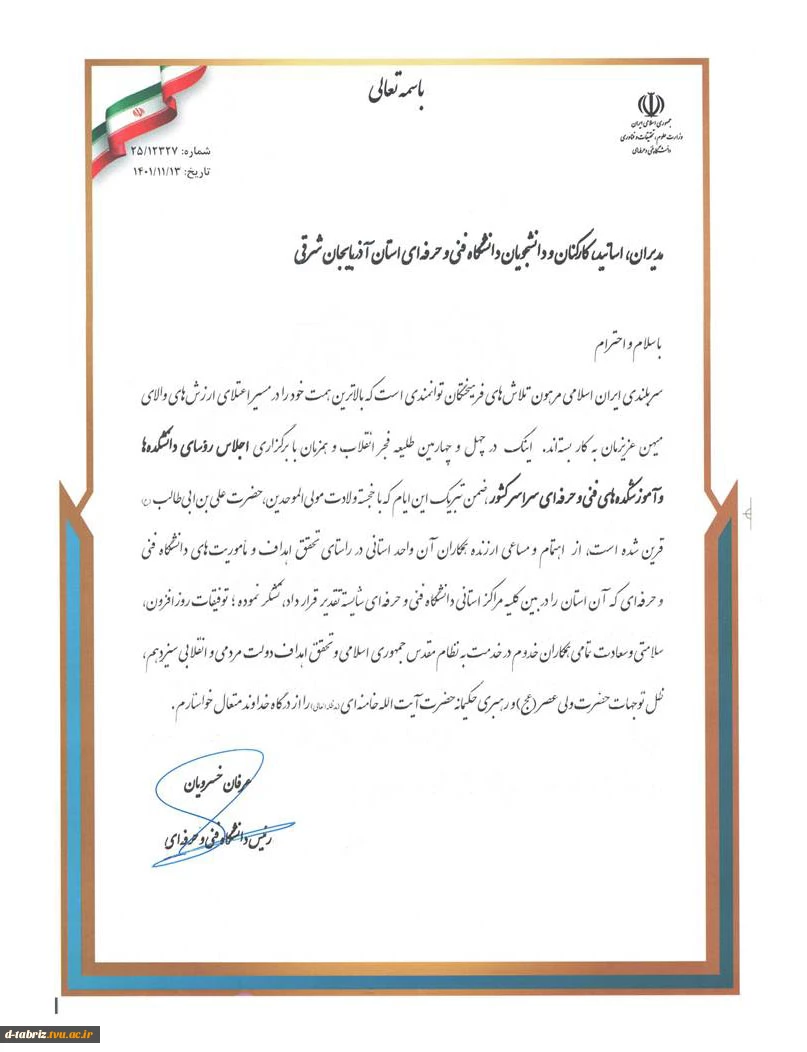 باسمه تعالی
جمهوری اسلامی ایران
وزارت علوم، تحقیقات و فناوری
دانشگاه فنی و حرفه‌ای
شماره: ۲۵/۱۲۳۲۷
تاریخ: ۱۴۰۱/۱۱/۱۳
مدیران، اساتید، کارکنان و دانشجویان دانشگاه فنی و حرفه ای استان آذربایجان شرقی
با سلام و احترام
سربلندی ایران اسلامی مرهون تلاش های فرهیختگان توانمندی است که بالاترین همت خود را در مسیر اعتلای ارزش های والای
میهن عزیزمان به کار بسته‌اند. اینک در چهل و چهارمین طلیعه فجر انقلاب و همزمان با برگزاری اجلاس رؤسای دانشکده‌ها
و آموزشکده‌های فنی و حرفه ای سراسر کشور، ضمن تبریک این ایام که با خجسته ولادت مولی الموحدین، حضرت علی بن ابی طالب (ع)
قرین شده است، از اهتمام و مساعی ارزنده همکاران آن واحد استانی در راستای تحقق اهداف و مأموریت های دانشگاه فنی
و حرفه‌ای که آن استان را در بین کلیه مراکز استانی دانشگاه فنی و حرفه ای شایسته تقدیر قرار داد، تشکر نموده ؛ توفیقات روزافزون،
سلامتی و سعادت تمامی همکاران خدوم در خدمت به نظام مقدس جمهوری اسلامی و تحقق اهداف دولت مردمی و انقلابی سیزدهم،
ظل توجهات حضرت ولی عصر (عج) و رهبری حکیمانه حضرت آیت الله خامنه ای (مدظله العالی) را از درگاه خداوند متعال خواستارم.
عرفان خسرویان
رئیس دانشگاه فنی و حرفه‌ای
d-tabriz.tvu.ac.ir